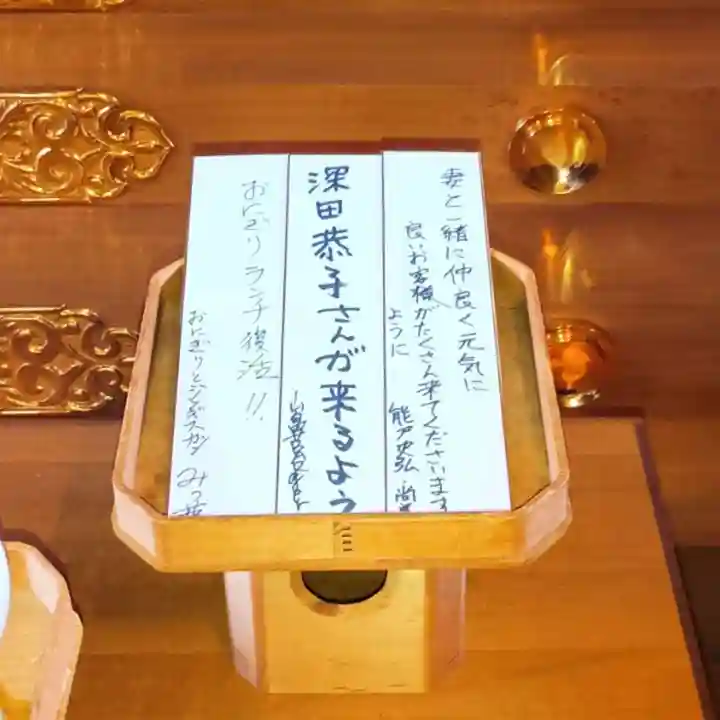 妻と一緒に仲良く元気に
良いお客様がたくさん来てくださいます
ように
能戸
深田恭子さんが来るよう
おにぎりランチ復活!!
おにぎりとジンギスカン